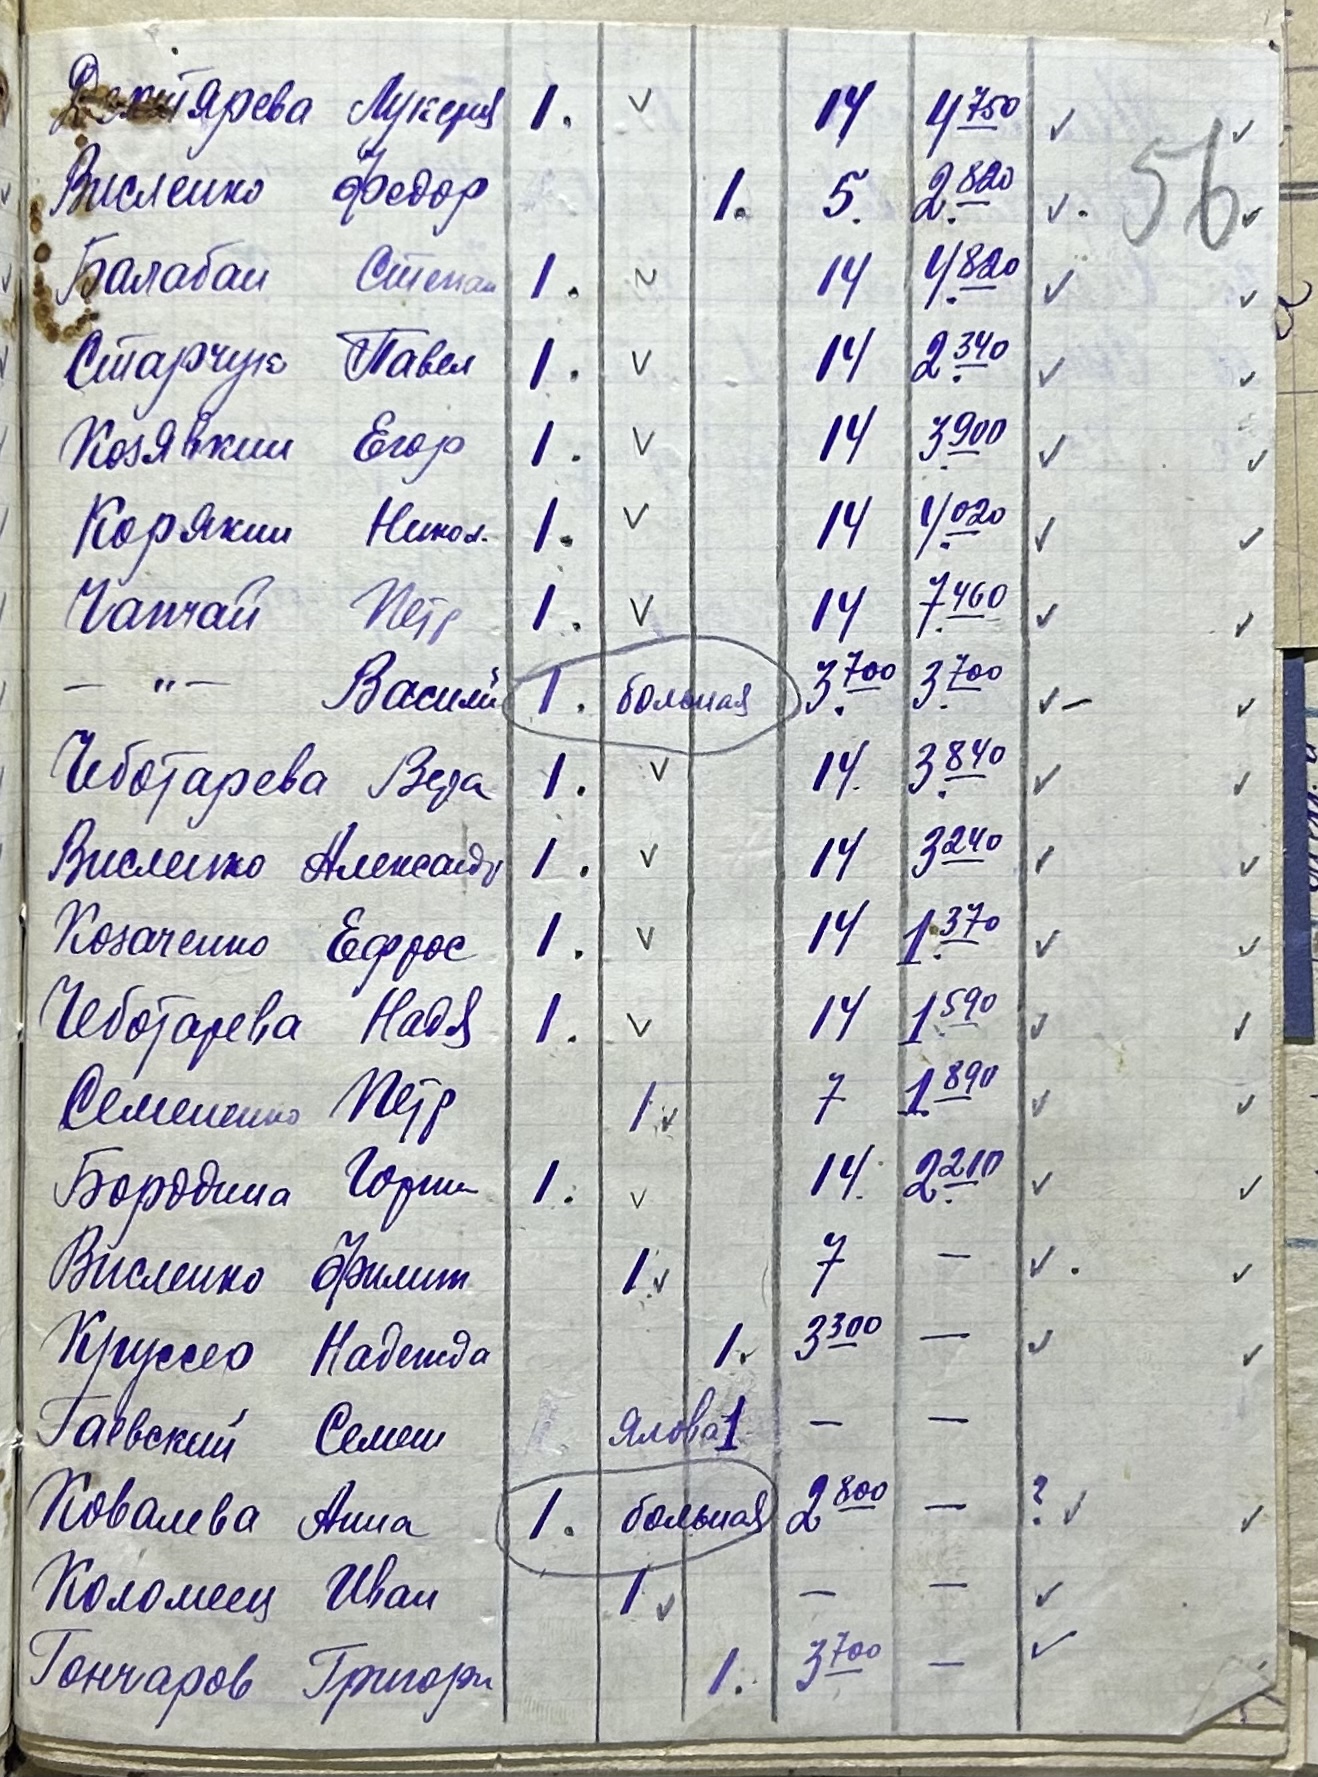 Дехтярева Лукерия 1. ✓ 14 4 750 ✓ ✓
56
Висленко Федор 1. 5. 2.820 ✓. ✓
Балабан Степан 1. ✓ 14 4.820 ✓ ✓
Старчук Павел 1. ✓ 14 2.340 ✓ ✓
Козявкин Егор 1. ✓ 14 3.900 ✓ ✓
Корякин Никол. 1. ✓ 14 4.020 ✓ ✓
Чапчай Пётр 1. ✓ 14 7.460 ✓ ✓
— " — Василий 1. больная 3.700 3.700 ✓– ✓
Чеботарева Вера 1. ✓ 14. 3.840 ✓ ✓
Висленко Александр 1. ✓ 14 3 240 ✓ ✓
Козаченко Ефрос 1. ✓ 14 1.370 ✓ ✓
Чеботарева Надя 1. ✓ 14 1.590 ✓ ✓
Семененко Пётр 1. ✓ 7 1 890 ✓ ✓
Бородина 1. ✓ 14. 2.210 ✓ ✓
Висленко Филип 1. ✓ 7 — ✓. ✓
Надежда 1. 3 300 — ✓ ✓
Гаевский Семен ялова 1 — —
Ковалева Анна 1. больная 2 800 — ? ✓ ✓
Коломеец Иван 1 ✓ — — ✓
Гончаров Григори 1. 3 700 — ✓